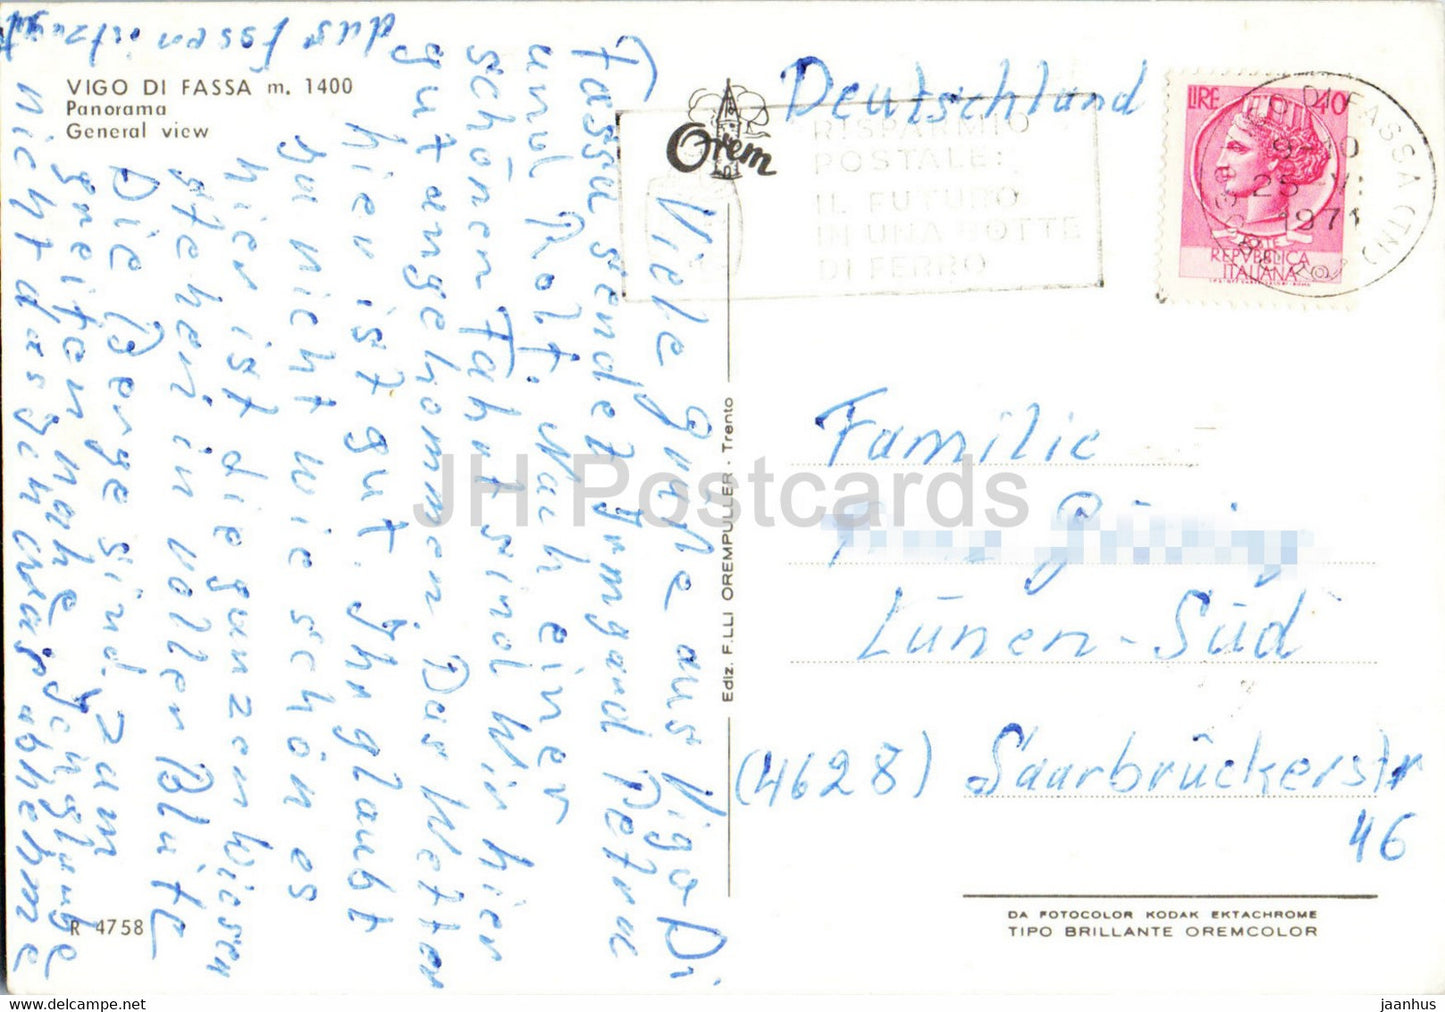 VIGO DI FASSA m. 1400
Panorama
General view
Orem
RISPARMIO
POSTALE:
IL FUTURO
IN UNA BOTTE
DI FERRO
LIRE 40
REPVBBLICA
ITALIANA
DI FASSA (TN)
9-10
25
1971
Deutschland
Familie
Lünen-Süd
(4628) Saarbrückerstr
46
Viele Grüße aus Vigo Di
Fassa sendet Irmgard Petra
und Rolf. Nach einer
schönen Fahrt sind Wir hier
gut angekommen. Das Wetter
hier ist gut. Ihr glaubt
ja nicht wie schön es
hier ist die ganzen Wiesen
stehen in voller Blüte
Die Berge sind zum
greifen nahe. Ich glaube
nicht das ich was abnehme
das Essen ist zu gut
Ediz. F.LLI OREMPULLER - Trento
R 4758
DA FOTOCOLOR KODAK EKTACHROME
TIPO BRILLANTE OREMCOLOR
JH Postcards
www.delcampe.net
jaanhus